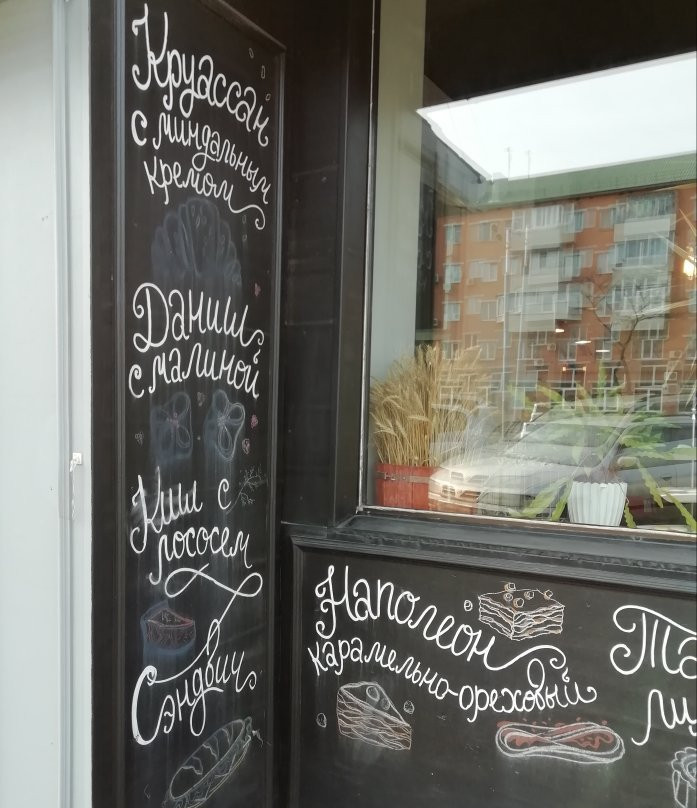 Круассан
с миндальным
кремом
Даниш
с малиной
Киш с
лососем
Сэндвич
Наполеон
карамельно-ореховый